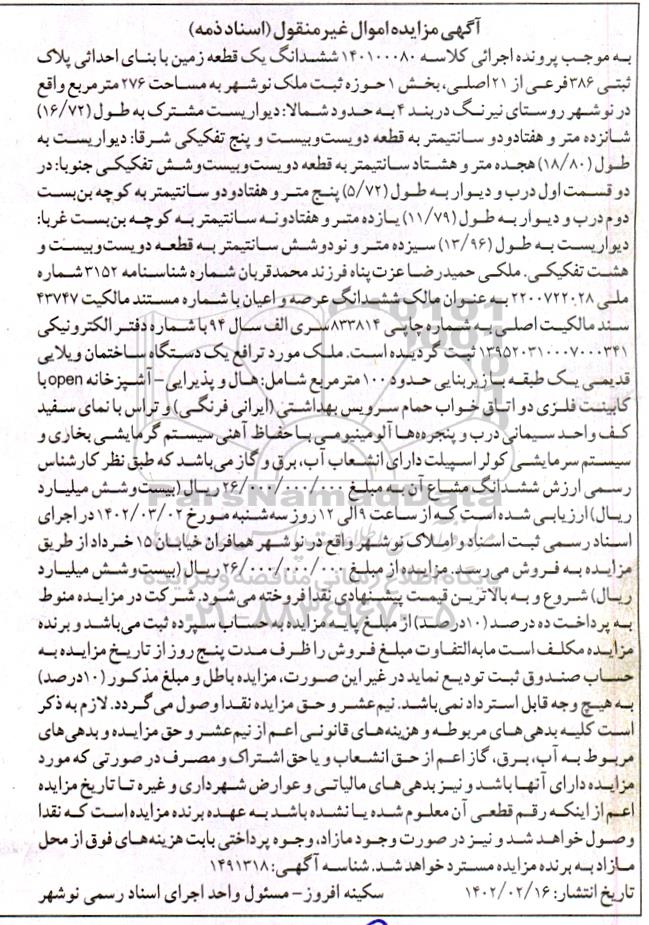 آگهی مزایده اموال غیر منقول (اسناد ذمه)
به موجب پرونده اجرائی کلاسه ۱۴۰۱۰۰۰۸۰ ششدانگ یک قطعه زمین با بنای احداثی پلاک
ثبتی ۳۸۶ فرعی از ۲۱ اصلی، بخش ۱ حوزه ثبت ملک نوشهر به مساحت ۲۷۶ متر مربع واقع
در نوشهر روستای نیرنگ در بند ۴ به حدود شمالا: دیواریست مشترک به طول (۱۶/۷۲)
شانزده متر و هفتاد و دو سانتیمتر به قطعه دویست و بیست و پنج تفکیکی شرقا: دیواریست به
طول (۱۸/۸۰) هجده متر و هشتاد سانتیمتر به قطعه دویست و بیست و شش تفکیکی جنوبا: در
دو قسمت اول درب و دیوار به طول (۵/۷۲) پنج متر و هفتاد و دو سانتیمتر به کوچه بن بست
دوم درب و دیوار به طول (۱۱/۷۹) یازده متر و هفتاد و نه سانتیمتر به کوچه بن بست غربا:
دیواریست به طول (۱۳/۹۶) سیزده متر و نود و شش سانتیمتر به قطعه دویست و بیست و
هشت تفکیکی. ملکی حمیدرضا عزت پناه فرزند محمدقربان شماره شناسنامه ۳۱۵۲ شماره
ملی ۲۲۰۰۷۲۲۰۲۸ به عنوان مالک ششدانگ عرصه و اعیان با شماره مستند مالکیت ۴۳۷۴۷
سند مالکیت اصلی به شماره چاپی ۸۳۳۸۱۴ سری الف سال ۹۴ با شماره دفتر الکترونیکی
۱۳۹۵۲۰۳۱۰۰۰۷۰۰۰۳۴۱ ثبت گردیده است. ملک مورد ترافع یک دستگاه ساختمان ویلایی
قدیمی یک طبقه با زیربنایی حدود ۱۰۰ متر مربع شامل: هال و پذیرایی - آشپزخانه open با
کابینت فلزی دو اتاق خواب حمام سرویس بهداشتی (ایرانی فرنگی) و تراس با نمای سفید
کف واحد سیمانی درب و پنجره ها آلومینیومی با حفاظ آهنی سیستم گرمایشی بخاری و
سیستم سرمایشی کولر اسپیلت دارای انشعاب آب، برق و گاز می باشد که طبق نظر کارشناس
رسمی ارزش ششدانگ مشاع آن به مبلغ ۲۶/۰۰۰/۰۰۰/۰۰۰ ریال (بیست و شش میلیارد
ریال) ارزیابی شده است که از ساعت ۹ الی ۱۲ روز سه شنبه مورخ ۱۴۰۲/۰۳/۰۲ در اجرای
اسناد رسمی ثبت اسناد و املاک نوشهر واقع در نوشهر همافران خیابان ۱۵ خرداد از طریق
مزایده به فروش می رسد. مزایده از مبلغ ۲۶/۰۰۰/۰۰۰/۰۰۰ ریال (بیست و شش میلیارد
ریال) شروع و به بالاترین قیمت پیشنهادی نقدا فروخته می شود. شرکت در مزایده منوط
به پرداخت ده درصد (۱۰ درصد) از مبلغ پایه مزایده به حساب سپرده ثبت می باشد و برنده
مزایده مکلف است مابه التفاوت مبلغ فروش را ظرف مدت پنج روز از تاریخ مزایده به
حساب صندوق ثبت تودیع نماید در غیر این صورت، مزایده باطل و مبلغ مذکور (۱۰ درصد)
به هیچ وجه قابل استرداد نمی باشد. نیم عشر و حق مزایده نقدا وصول می گردد. لازم به ذکر
است کلیه بدهی های مربوطه و هزینه های قانونی اعم از نیم عشر و حق مزایده و بدهی های
مربوط به آب، برق، گاز اعم از حق انشعاب و یا حق اشتراک و مصرف در صورتی که مورد
مزایده دارای آنها باشد و نیز بدهی های مالیاتی و عوارض شهرداری و غیره تا تاریخ مزایده
اعم از اینکه رقم قطعی آن معلوم شده یا نشده باشد به عهده برنده مزایده است که نقدا
وصول خواهد شد و نیز در صورت وجود مازاد، وجوه پرداختی بابت هزینه های فوق از محل
مازاد به برنده مزایده مسترد خواهد شد. شناسه آگهی: ۱۴۹۱۳۱۸
تاریخ انتشار: ۱۴۰۲/۰۲/۱۶ سکینه افروز - مسئول واحد اجرای اسناد رسمی نوشهر
ParsNamadData
پایگاه اطلاع رسانی مناقصه و مزایده
۰۲۱-۸۸۳۴۹۶۷۰-۵